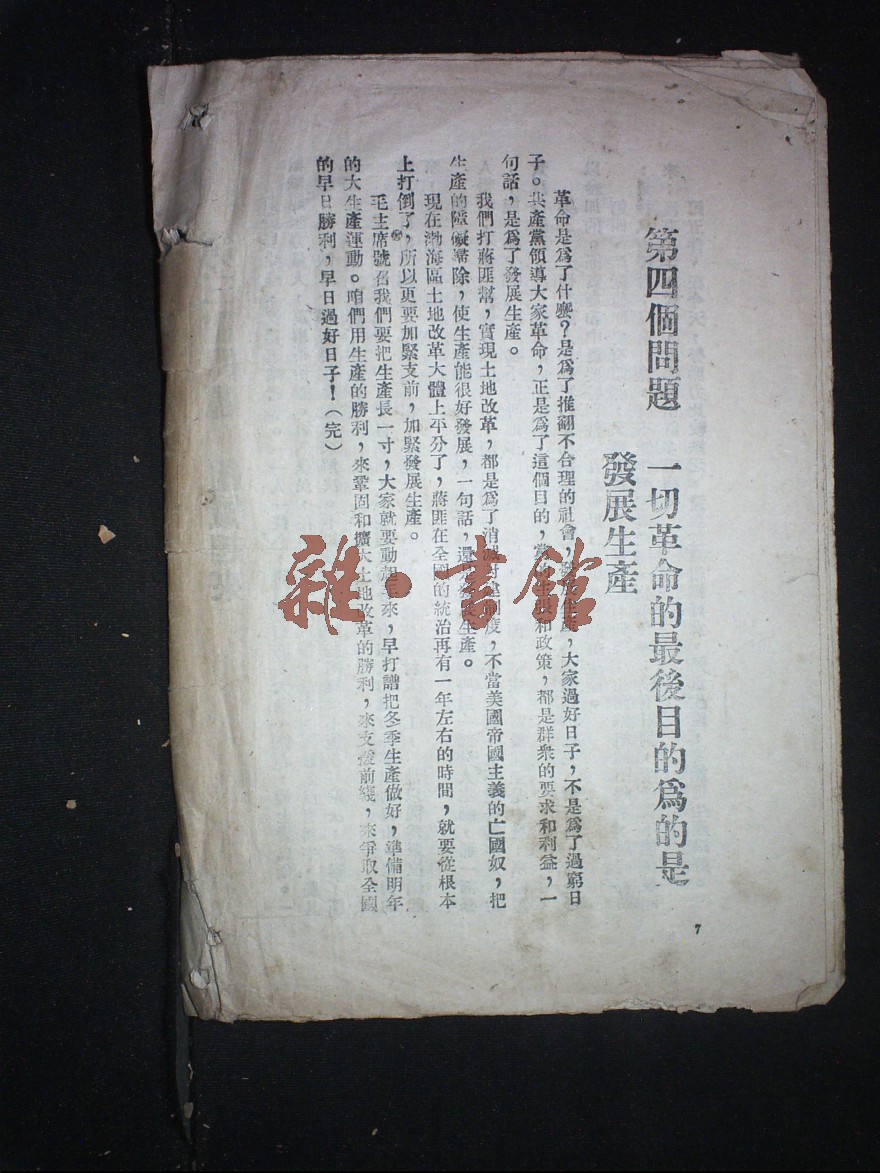 第四個問題　一切革命的最後目的爲的是
發展生產
革命是爲了什麼？是爲了推翻不合理的社會，發展生產，大家過好日子，不是爲了過窮日
子。共產黨領導大家革命，正是爲了這個目的，黨的主張和政策，都是群衆的要求和利益，一
句話，是爲了發展生產。
我們打蔣匪幫，實現土地改革，都是爲了消滅封建制度，不當美國帝國主義的亡國奴，把
生產的障礙掃除，使生產能很好發展，一句話，還是發展生產。
現在渤海區土地改革大體上平分了，蔣匪在全國的統治再有一年左右的時間，就要從根本
上打倒了，所以更要加緊支前，加緊發展生產。
毛主席號召我們要把生產長一寸，大家就要動起來，早打譜把冬季生產做好，準備明年
的大生產運動。咱們用生產的勝利，來鞏固和擴大土地改革的勝利，來支援前綫，來爭取全國
的早日勝利，早日過好日子！（完）
7
雜·書館